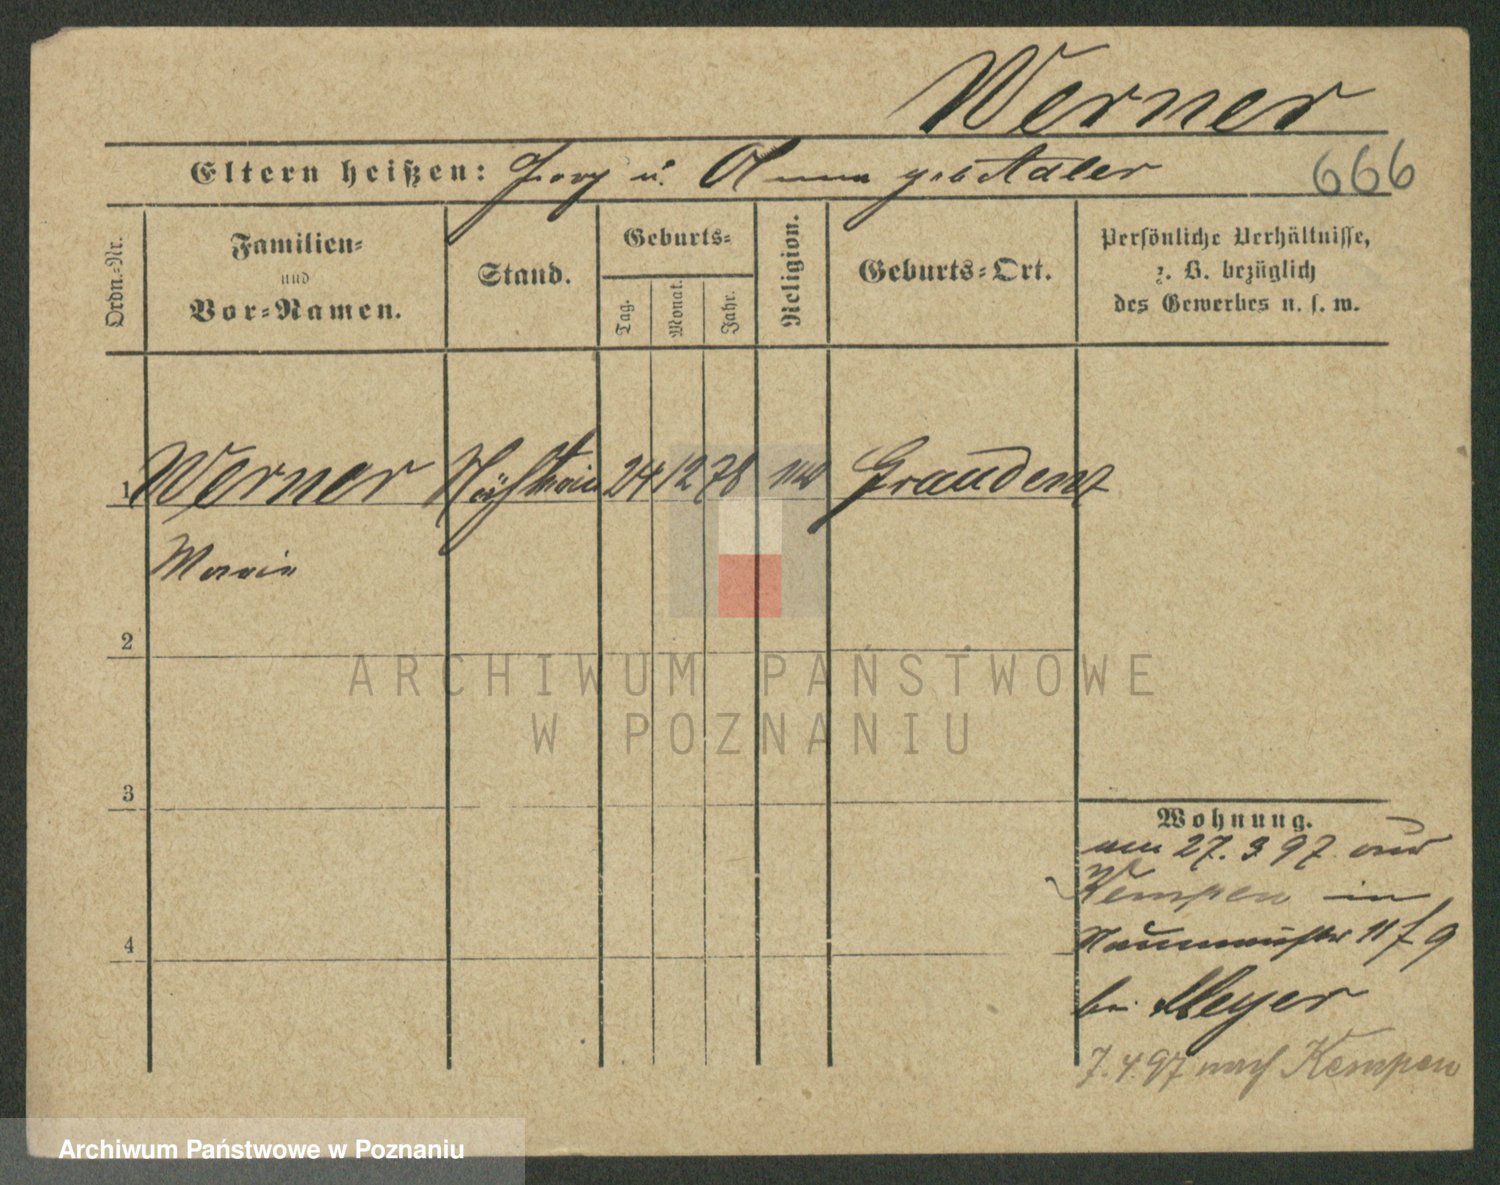 Werner
Eltern heißen: Georg u. Anna geb Adler
666
Ordn.=Nr.
Familien=
und
Vor=Namen.
Stand.
Geburts=
Tag.
Monat.
Jahr.
Religion.
Geburts=Ort.
Persönliche Verhältnisse,
z. B. bezüglich
des Gewerbes u. s. w.
1 Werner Nähterin 24 12 78 Graudenz
Marie
2
3
4
Wohnung.
am 27. 3 97 aus
Kempen in
11 f 9
bei Meyer
7. 4. 97 nach Kempen
ARCHIWUM PAŃSTWOWE
W POZNANIU
Archiwum Państwowe w Poznaniu